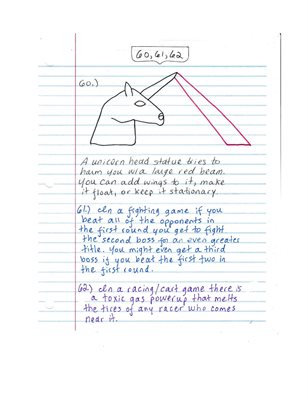 60, 61, 62
60.)
A unicorn head statue tries to
harm you w/a large red beam.
You can add wings to it, make
it float, or keep it stationary.
61.) In a fighting game if you
beat all of the opponents in
the first round you get to fight
the second boss for an even greater
title. You might even get a third
boss if you beat the first two in
the first round.
62.) In a racing/cart game there is
a toxic gas powerup that melts
the tires of any racer who comes
near it.